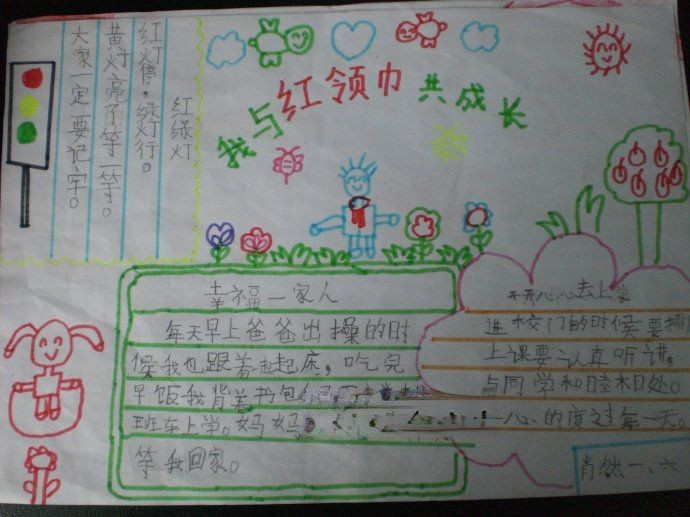 我与红领巾共成长
红绿灯
红灯停，绿灯行。
黄灯亮了等一等。
大家一定要记牢。
幸福一家人
每天早上爸爸出操的时
候我也跟着起起床，吃完
早饭我背着书包
班车上学。妈妈
等我回家。
开开心心去上学
进校门的时候要排
上课要认真听讲，
与同学和睦相处。
心的度过每一天。
肖然一、六